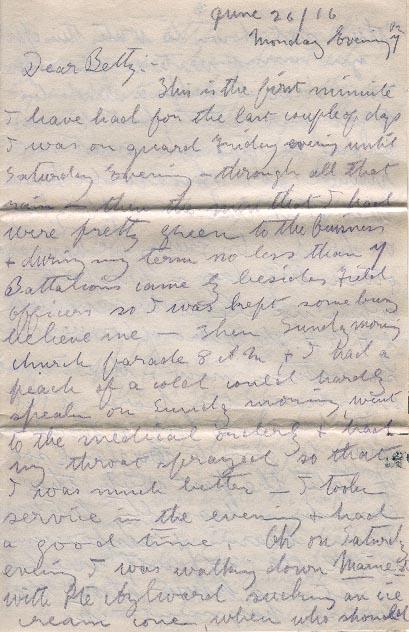 June 26/16
Monday Evening
Dear Betty:-
This is the first minute
I have had for the last couple of days
I was on guard Friday evening until
Saturday Evening - through all that
rain - then the men that I had
were pretty green to the business
& during my term no less than 7
Battalions came by besides Field
Officers so I was kept some busy
believe me - Then Sunday morning
church parade 8 A.M. & I had a
peach of a cold could hardly
speak on Sunday morning, went
to the medical orderly & had
my throat sprayed so that
I was much better - I took
service in the evening & had
a good time. Oh on Saturday
evening I was walking down Maine St
with Pte Aylward sucking an ice
cream cone, when who should